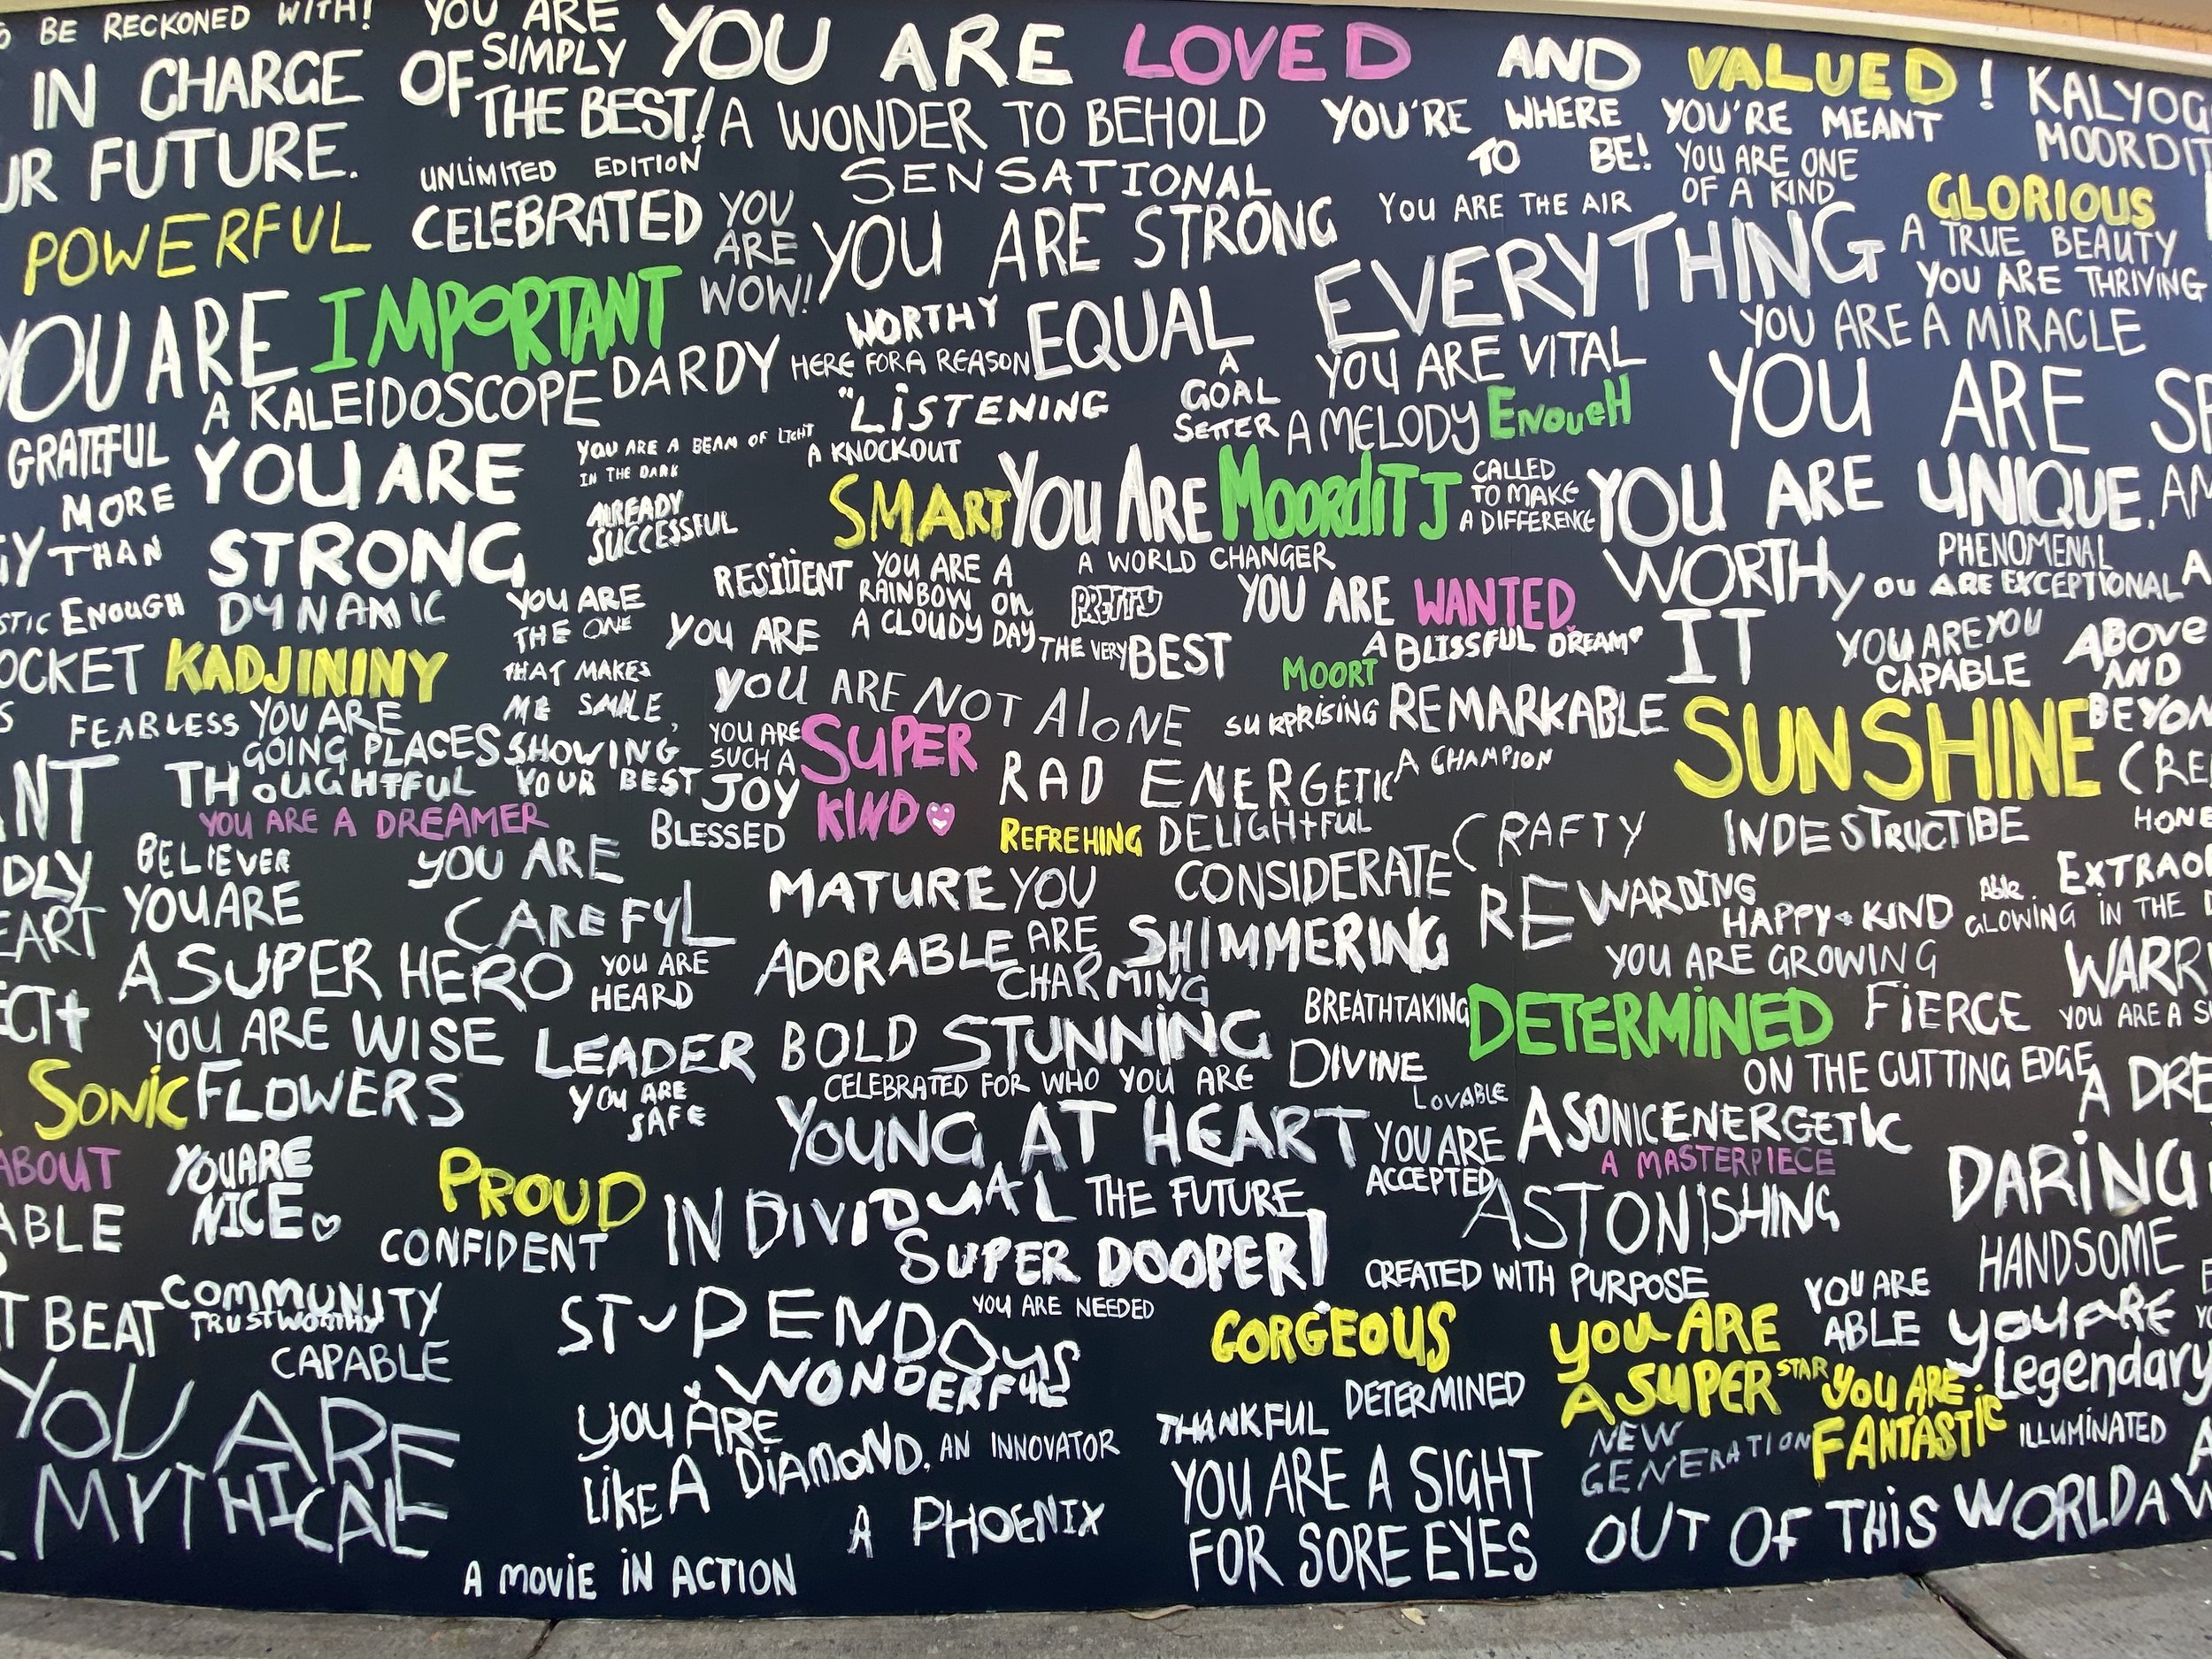 BE RECKONED WITH!
IN CHARGE OF
FUTURE.
YOU ARE
SIMPLY
THE BEST!
YOU ARE LOVED AND VALUED!
KALYOG
MOORDIT
A WONDER TO BEHOLD
YOU'RE WHERE YOU'RE MEANT
TO BE!
UNLIMITED EDITION
SENSATIONAL
YOU ARE ONE
OF A KIND
GLORIOUS
POWERFUL
CELEBRATED
YOU
ARE
WOW!
YOU ARE STRONG
YOU ARE THE AIR
EVERYTHING
A TRUE BEAUTY
YOU ARE THRIVING
YOU ARE IMPORTANT
WORTHY
EQUAL
YOU ARE A MIRACLE
A KALEIDOSCOPE
DARDY
HERE FOR A REASON
YOU ARE VITAL
"LISTENING
A
GOAL
SETTER
A MELODY
ENOUGH
YOU ARE
GRATEFUL
YOU ARE
STRONG
YOU ARE A BEAM OF LIGHT
IN THE DARK
A KNOCKOUT
MORE
THAN
ALREADY
SUCCESSFUL
SMART
YOU ARE MOORDITJ
CALLED
TO MAKE
A DIFFERENCE
YOU ARE UNIQUE.
WORTH
IT
PHENOMENAL
YOU ARE EXCEPTIONAL
A WORLD CHANGER
YOU ARE A
RAINBOW ON
A CLOUDY DAY
PRETTY
YOU ARE WANTED
ENOUGH
DYNAMIC
YOU ARE
THE ONE
THAT MAKES
ME SMILE,
YOU ARE
THE VERY BEST
A BLISSFUL DREAM
MOORT
YOU ARE YOU
CAPABLE
ABOVE
AND
KADJININY
YOU ARE NOT ALONE
SURPRISING
REMARKABLE
SUNSHINE
FEARLESS
YOU ARE
GOING PLACES
SHOWING
YOUR BEST
YOU ARE
SUCH A
JOY
SUPER
KIND
RAD
ENERGETIC
A CHAMPION
THOUGHTFUL
YOU ARE A DREAMER
BLESSED
REFREHING
DELIGHTFUL
CRAFTY
INDESTRUCTIBE
BELIEVER
YOU ARE
CAREFYL
MATURE
YOU
ARE
CHARMING
CONSIDERATE
REWARDING
HAPPY + KIND
ABLE
GLOWING IN THE
YOU ARE
A SUPER HERO
YOU ARE
HEARD
ADORABLE
SHIMMERING
YOU ARE GROWING
YOU ARE WISE
LEADER
BOLD
STUNNING
BREATHTAKING
DETERMINED
FIERCE
YOU ARE A
SONIC
FLOWERS
YOU ARE
SAFE
CELEBRATED FOR WHO YOU ARE
DIVINE
LOVABLE
ON THE CUTTING EDGE
YOUNG AT HEART
YOU ARE
ACCEPTED
A SONIC ENERGETIC
A MASTERPIECE
ABOUT
YOU ARE
NICE
PROUD
INDIVIDUAL
THE FUTURE
ASTONISHING
DARING
CONFIDENT
SUPER DOOPER!
CREATED WITH PURPOSE
HANDSOME
BEAT
COMMUNITY
TRUSTWORTHY
CAPABLE
STUPENDOUS
YOU ARE NEEDED
WONDERFUL
GORGEOUS
YOU ARE
A SUPER STAR
YOU ARE
ABLE
YOU ARE
Legendary
YOU ARE
MYTHICAL
YOU ARE
LIKE A DIAMOND,
AN INNOVATOR
THANKFUL
DETERMINED
NEW
GENERATION
YOU ARE
FANTASTIC
ILLUMINATED
A PHOENIX
YOU ARE A SIGHT
FOR SORE EYES
OUT OF THIS WORLD
A MOVIE IN ACTION